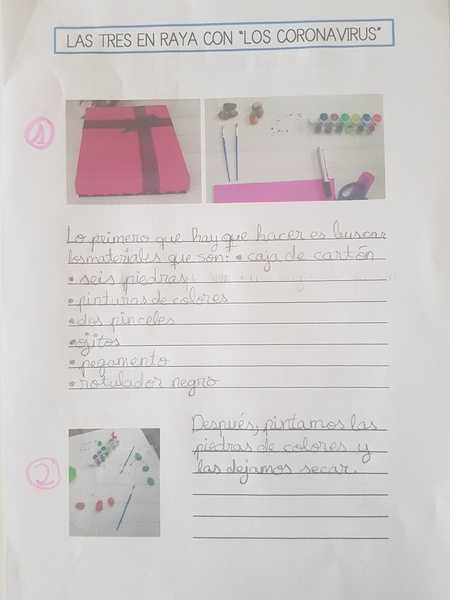 LAS TRES EN RAYA CON "LOS CORONAVIRUS"
1
Lo primero que hay que hacer es buscar
los materiales que son: • caja de cartón
• seis piedras
• pinturas de colores
• dos pinceles
• ojitos
• pegamento
• rotulador negro
2
Después, pintamos las
piedras de colores y
las dejamos secar.